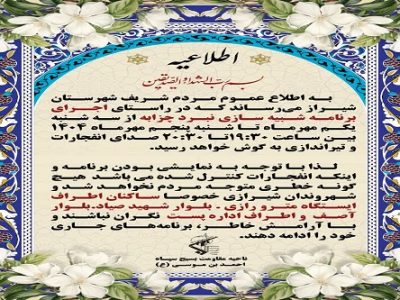 اطلاعیه
بسم رب الشهداء و الصدیقین
به اطلاع عموم مردم شریف شهرستان
شیراز می‌رساند که در راستای اجرای
برنامه شبیه سازی نبرد چزابه از سه شنبه
یکم مهرماه تا شنبه پنجم مهرماه ۱۴۰۴
بین ساعت ۱۹:۳۰ تا ۲۰:۳۰ صدای انفجارات
و تیراندازی به گوش خواهد رسید.
لذا با توجه به نمایشی بودن برنامه و
اینکه انفجارات کنترل شده می باشد هیچ
گونه خطری متوجه مردم نخواهد شد و
شهروندان شیرازی خصوصا ساکنان اطراف
ایستگاه مترو رازی - بلوار شهید صیاد،بلوار
آصف و اطراف اداره پست نگران نباشند و
با آرامش خاطر، برنامه‌های جاری
خود را ادامه دهند.
ناحیه مقاومت بسیج سپاه
احمد بن موسی (ع)